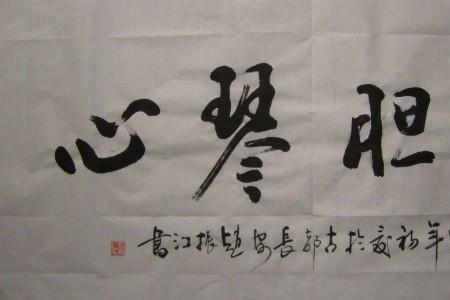 胆琴心
年初夏於古都長安趙振江書